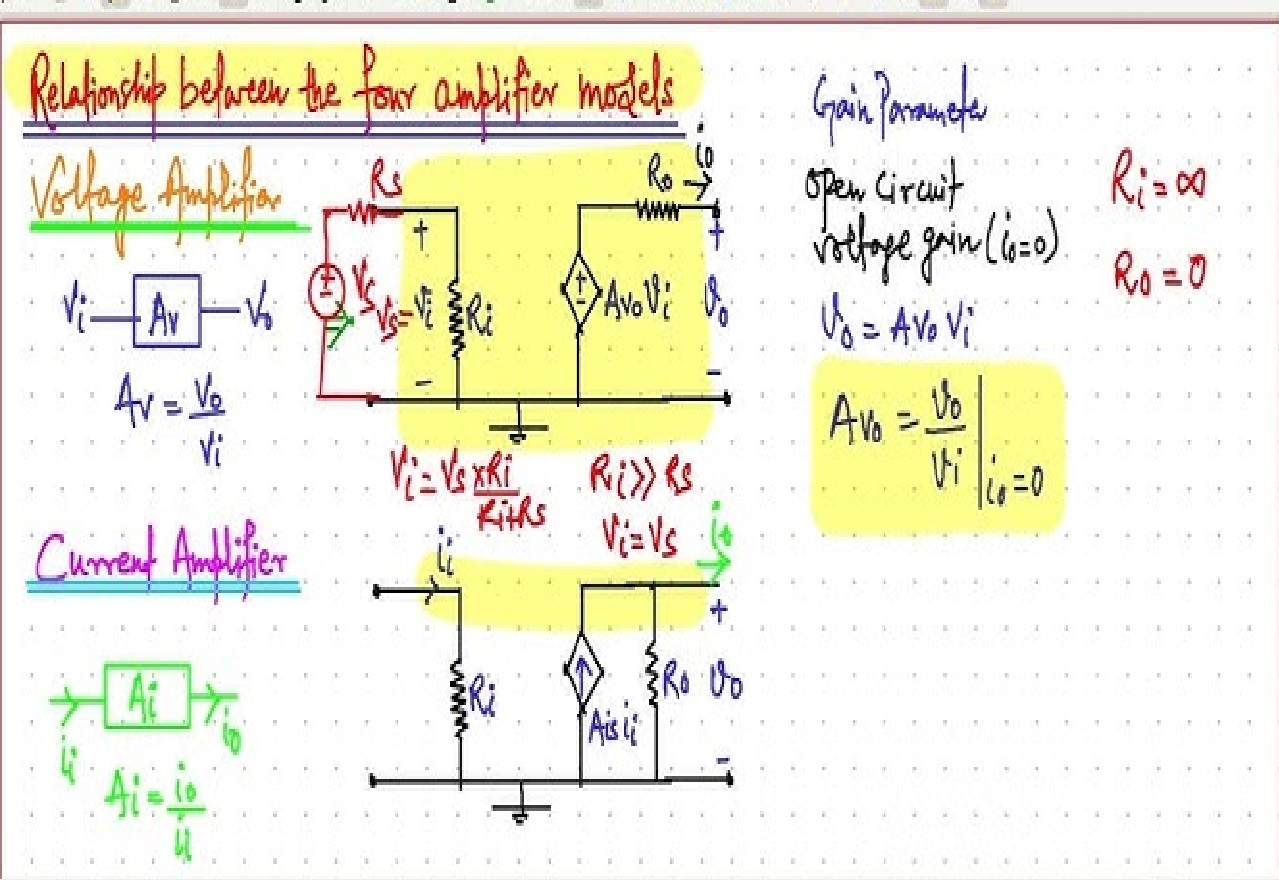 Relationship between the four amplifier models
Voltage Amplifier
Vi Av Vo
Av = Vo/Vi
Rs
Vs
Vs = Vi
+
-
Ri
+
-
Avo Vi
Ro
io
+
vo
-
Vi = Vs × Ri/Ri+Rs
Ri >> Rs
Vi = Vs
Gain Parameter
Open Circuit
voltage gain (io=0)
vo = Avo Vi
Avo = vo/vi | io=0
Ri = ∞
Ro = 0
Current Amplifier
ii Ai io
Ai = io/ii
ii
Ri
Ais ii
Ro
io
+
vo
-